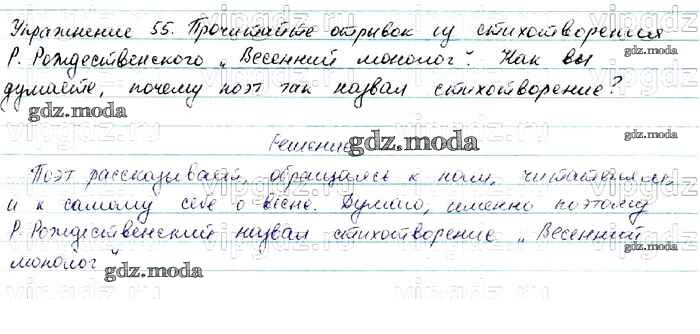 Упражнение 55. Прочитайте отрывок из стихотворения
Р. Рождественского „Весенний монолог". Как вы
думаете, почему поэт так назвал стихотворение?
gdz.moda
gdz.moda
gdz.moda
Решение
Поэт рассказывает, обращаясь к нам, читателям,
и к самому себе о весне. Думаю, именно поэтому
Р. Рождественский назвал стихотворение „Весенний
монолог"
gdz.moda